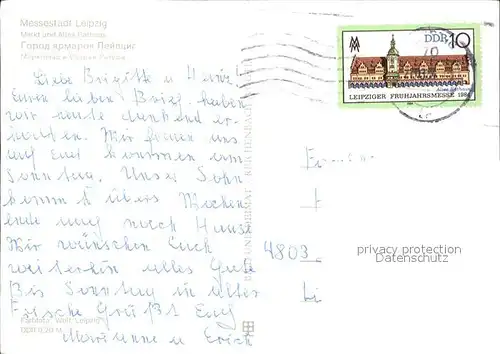 Messestadt Leipzig
Markt und Altes Rathaus
Город ярмарок Лейпциг
Liebe Brigitte u Heinz!
Euren lieben Brief haben
wir heute dankend er-
halten. Wir freuen uns
auf Euer kommen am
Sonntag. Unser Sohn
kommt übers Wochen
ende auch nach Hause
Wir wünschen Euch
weiterhin alles Gute
Bis Sonntag in alter
Frische Grüßt Euch
Marianne u Erich
DDR 10
LEIPZIGER FRÜHJAHRSMESSE 1984
Altes Rathaus
BILD UND HEIMAT REICHENBACH
4803
privacy protection
Datenschutz
Farbfoto: Wolf, Leipzig
DDR 0,20 M